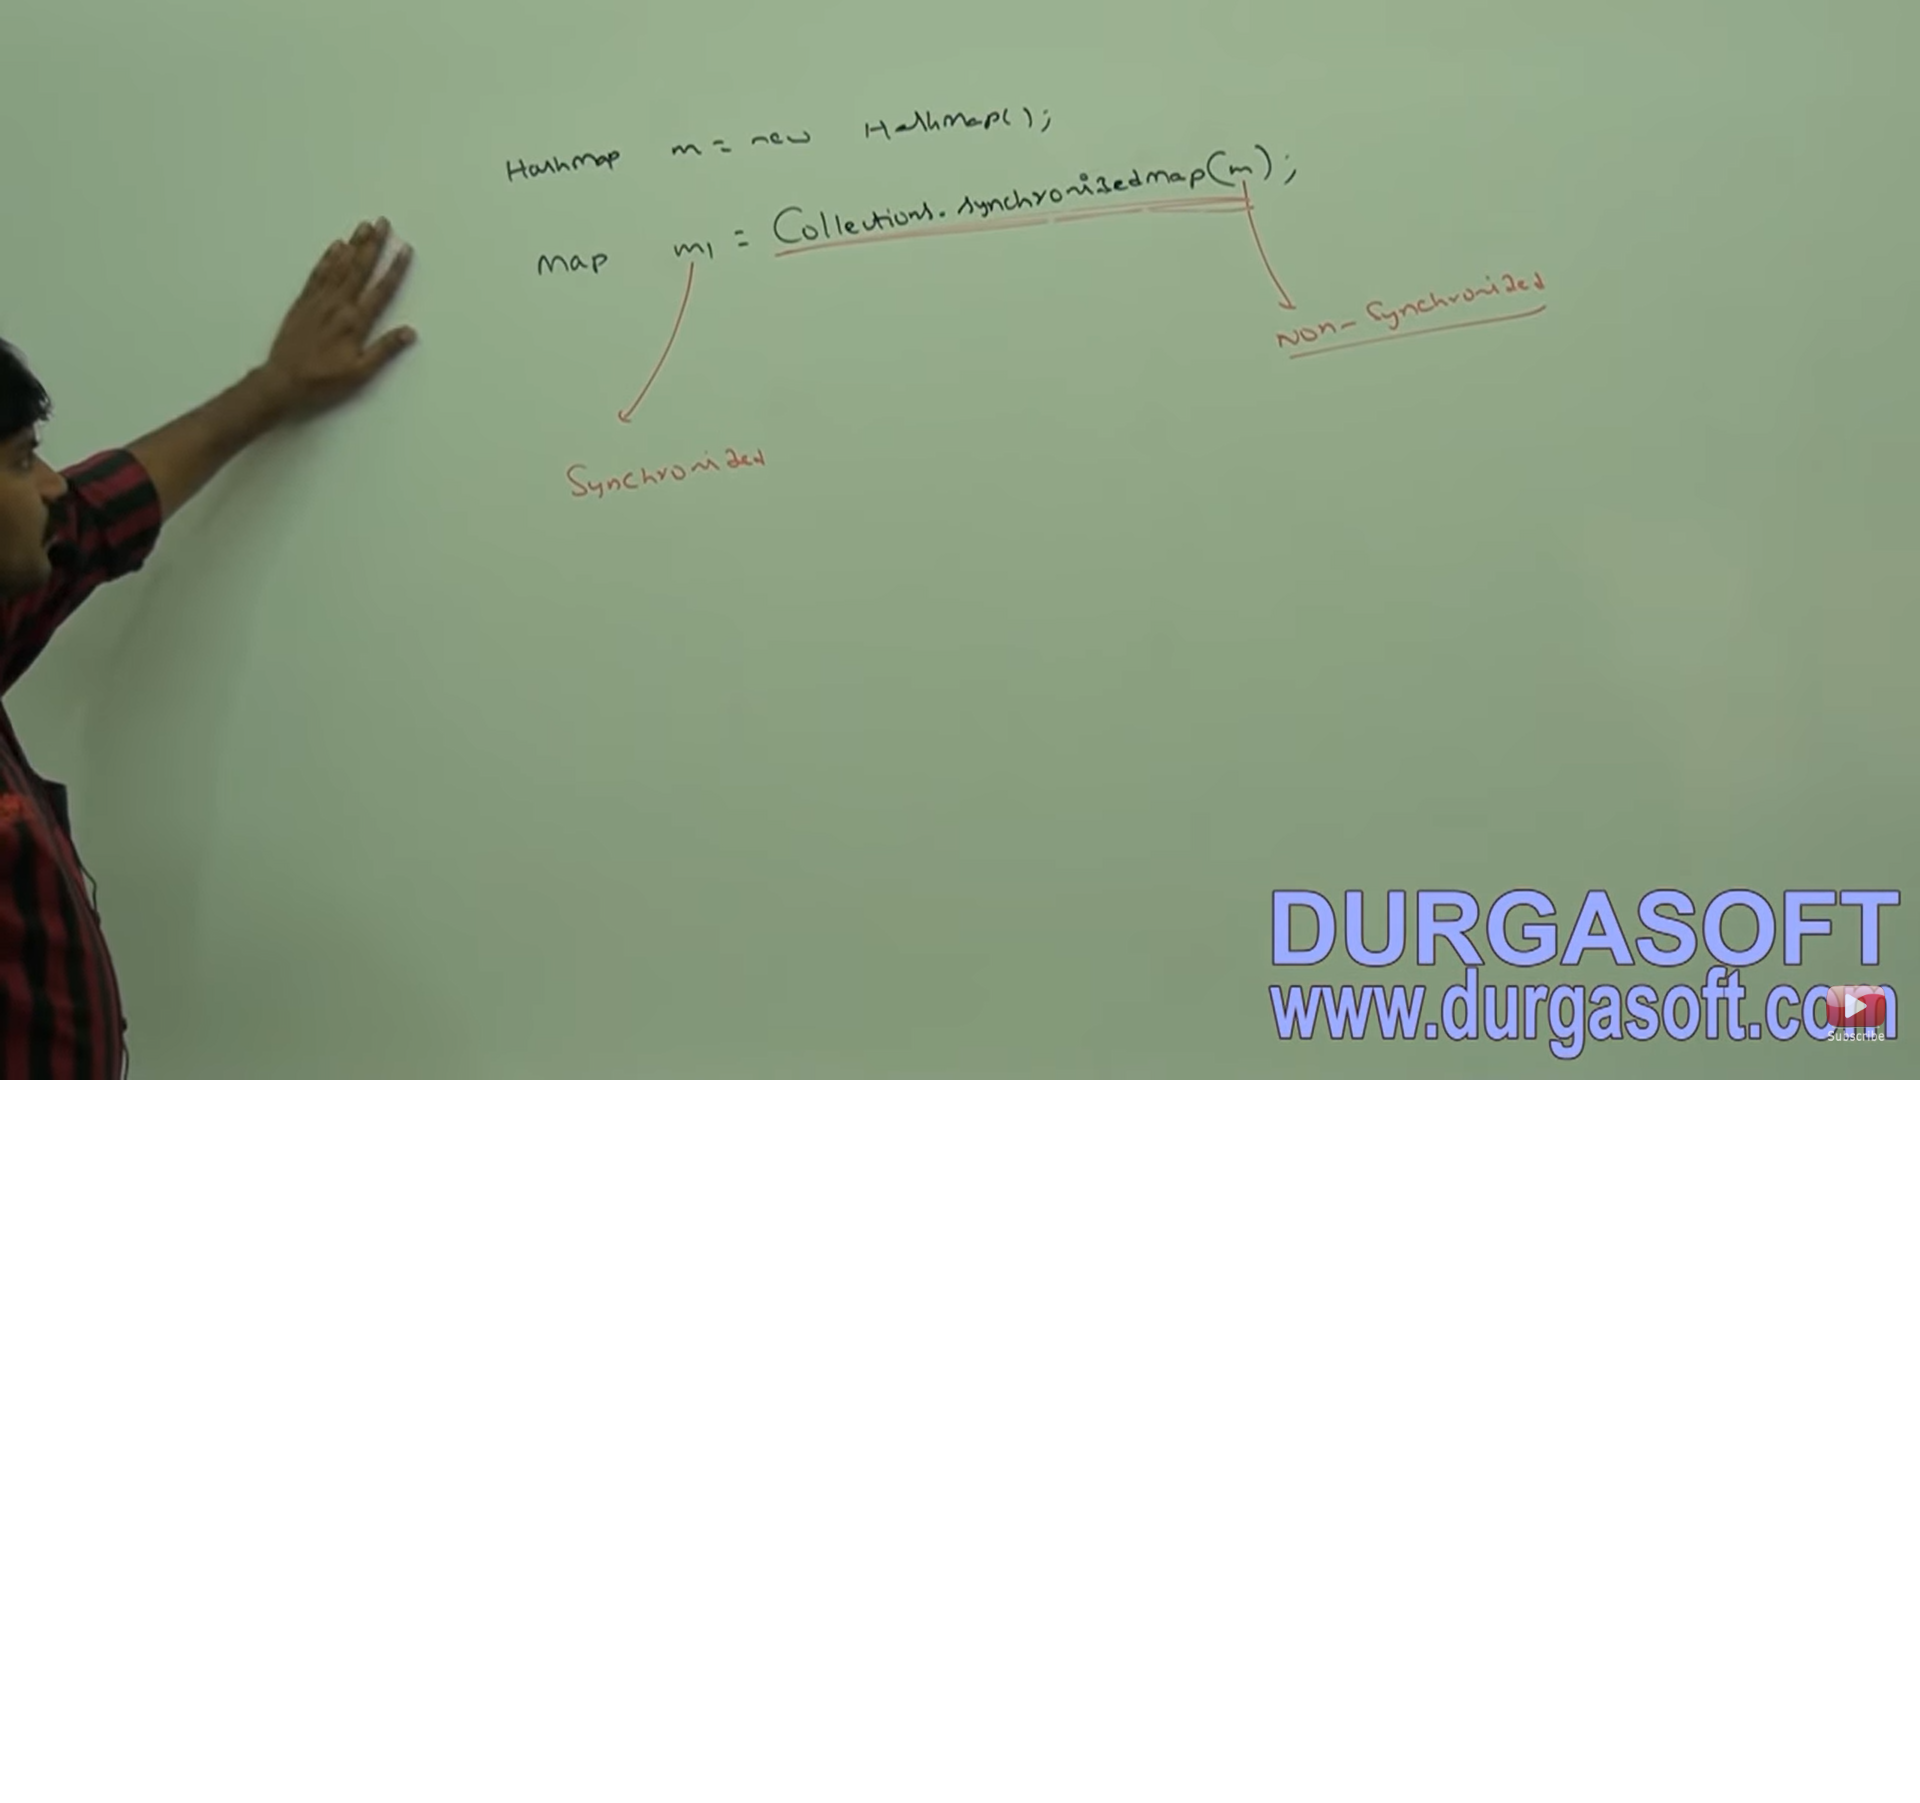 HashMap m = new HashMap();
Map m1 = Collections.synchronizedmap(m);
Non-Synchronized
Synchronized
DURGASOFT
www.durgasoft.com
Subscribe